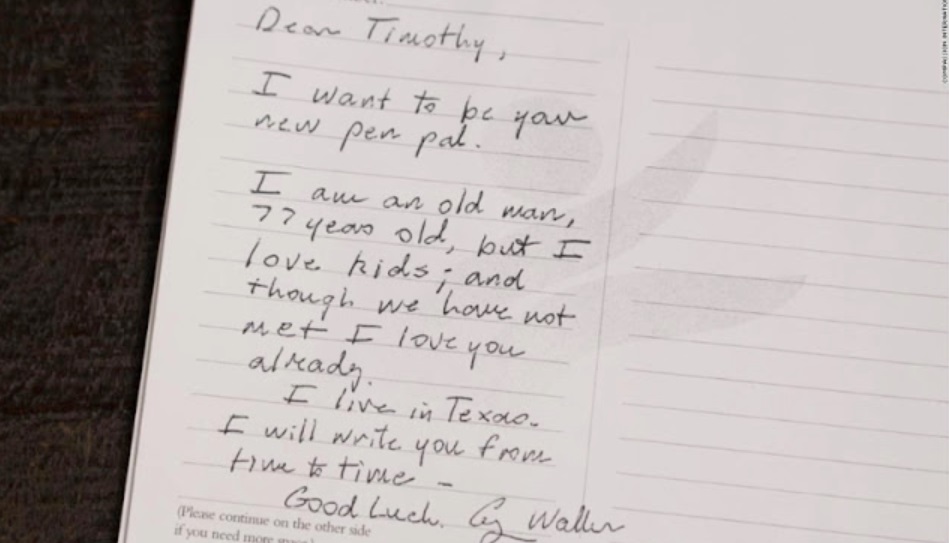 Dear Timothy,
I want to be your
new pen pal.
I am an old man,
77 years old, but I
love kids; and
though we have not
met I love you
already.
I live in Texas.
I will write you from
time to time -
Good Luck. G. Walker
(Please continue on the other side
if you need more space)
COMPASSION INTERNATIONAL